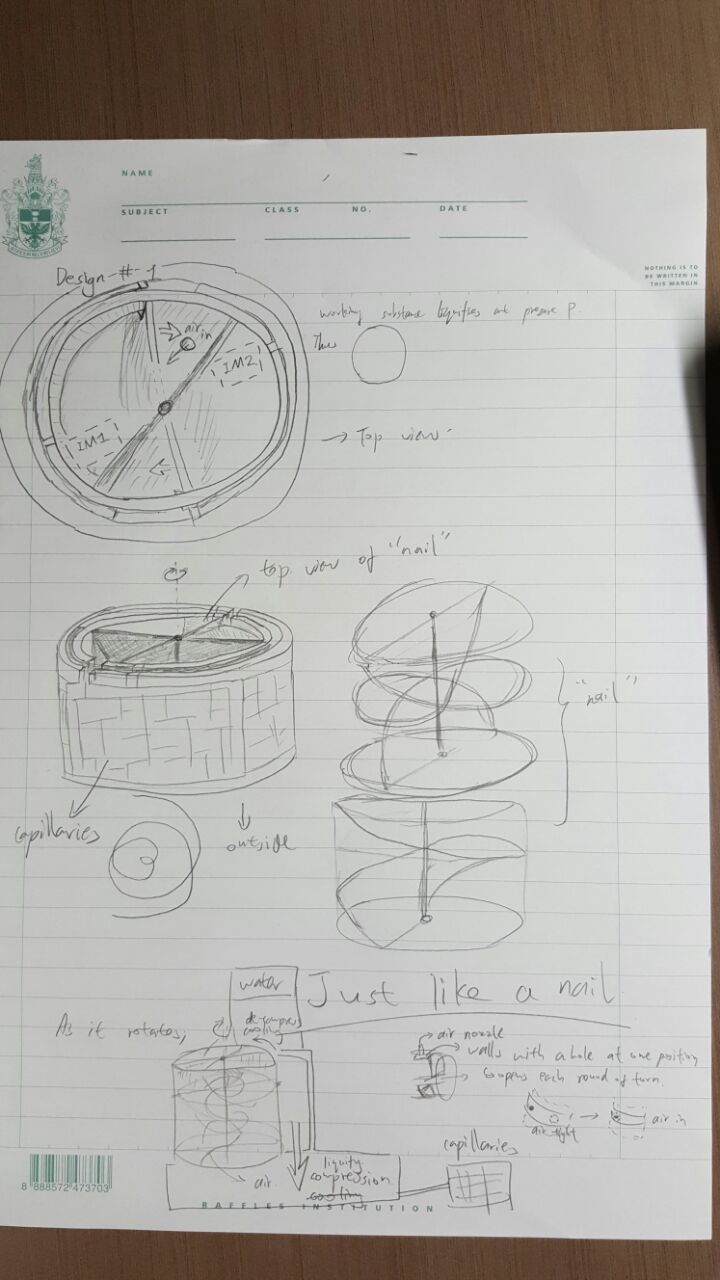 NAME
SUBJECT CLASS NO. DATE
NOTHING IS TO
BE WRITTEN IN
THIS MARGIN
Design-#-1
working substance liquifies at pressure P.
Thus
air in
IM2
IM1
→ Top view
top view of "nail"
"nail"
capillaries
outside
water
Just like a nail
As it rotates,
decompress
cooling
air nozzle
walls with a hole at one position
opens each round of turn.
air tight
air in
capillaries
liquify
compression
cooling
air
8 888572 473703
RAFFLES INSTITUTION